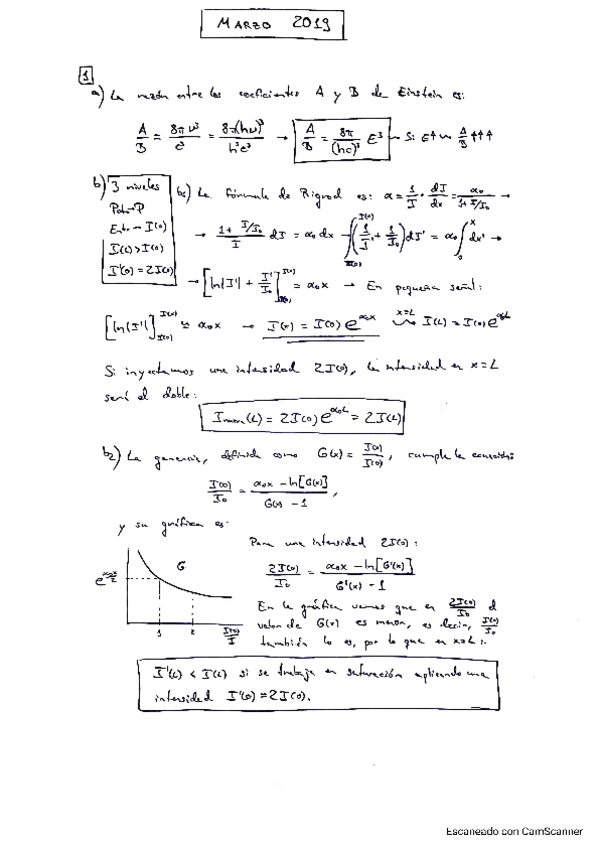 MARZO 2019
1
a) La razón entre los coeficientes A y B de Einstein es:
A/B = 8πν³/c³ = 8π(hν)³/h³c³ → A/B = 8π/(hc)³ E³ ~ Si E↑ ⇝ A/B ↑↑↑
b) 3 niveles
Poto → P
Entr → I(0)
I(L) > I(0)
I'(0) = 2I(0)
b1) La fórmula de Rigrod es: α = 1/I · dI/dx = α₀/(1 + I/I₀) →
→ (1 + I/I₀)/I dI = α₀ dx → ∫_{I(0)}^{I(x)} (1/I' + 1/I₀) dI' = α₀ ∫_0^x dx' →
→ [ln|I'| + I'/I₀]_{I(0)}^{I(x)} = α₀x → En pequeña señal:
[ln(I')]_{I(0)}^{I(x)} ≃ α₀x → I(x) = I(0) e^{α₀x} ⇝^{x=L} I(L) = I(0) e^{α₀L}
Si inyectamos una intensidad 2I(0), la intensidad en x = L
será el doble:
(L) = 2I(0) e^{α₀L} = 2I(L)
b2) La ganancia, definida como G(x) = I(x)/I(0), cumple la ecuación:
I(0)/I₀ = (α₀x − ln[G(x)])/(G(x) − 1),
y su gráfica es:
Para una intensidad 2I(0):
2I(0)/I₀ = (α₀x − ln[G'(x)])/(G'(x) − 1)
G
1 2
En la gráfica vemos que en 2I(0)/I₀ el
valor de G(x) es menor, es decir,
también lo es, por lo que en x = L:
I'(L) < I(L) si se trabaja en saturación aplicando una
intensidad I'(0) = 2I(0).
Escaneado con CamScanner